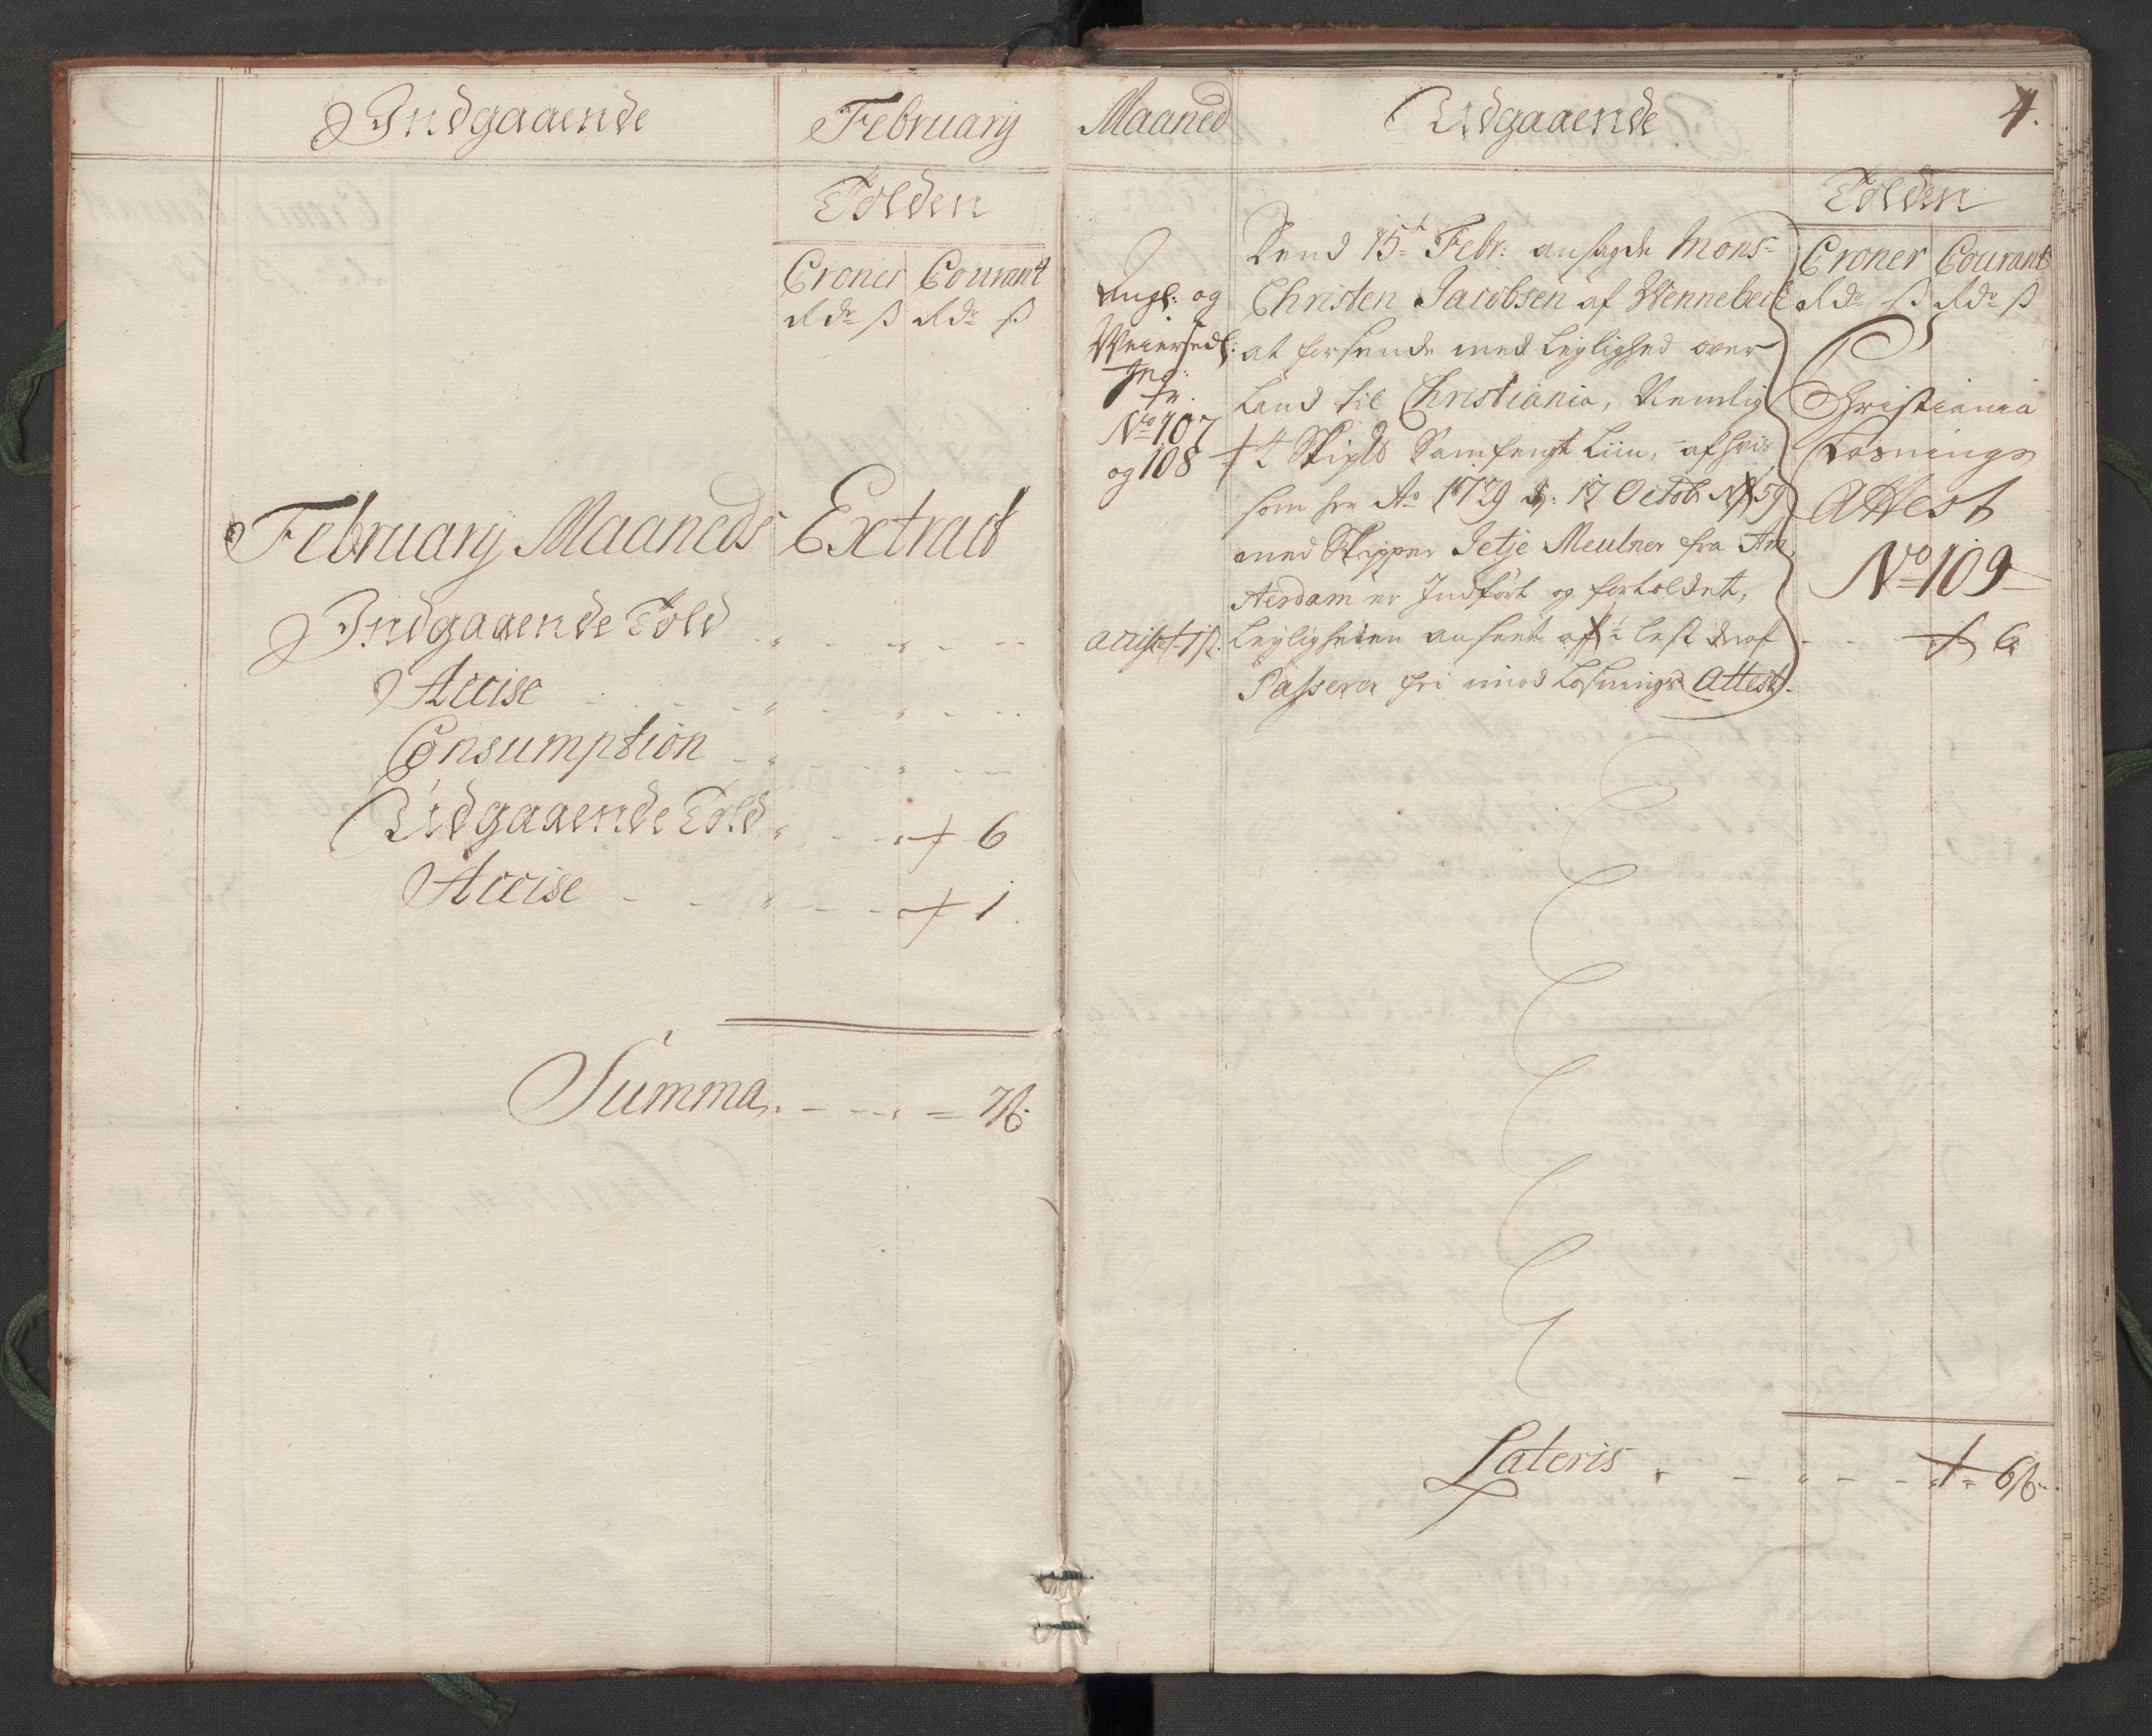 Indgaaende
February
Tolden
Croner Courant
Rdr ß Rdr ß
February Maaneds Extract
Indgaaende Told
Accise
Consumption
Udgaaende Told 6
Accise 1
Summa 7ß
Maaned
Udgaaende
4.
Tolden
Croner Courant
Rdr ß Rdr ß
Angl: og
Weiersedl:
No 107
og 108
Accise 1ß
Dend 15t Febr: ansagde Mons
Christen Jacobsen af Wennebech
at forsende med Leylighed over
Land til Christiania, Nemlig
Skipd Samfengt Liin, af hvis
som her Ao 1729 d: 17 Octob No 59
med Skipper Jetje Meulner fra Am
sterdam er Indført og fortoldet,
Leyligheden anseet af lest deraf
Passerer fri imod Losnings Attest.
Christiania
Losnings
Attest
No 109
6
Lateris 6ß